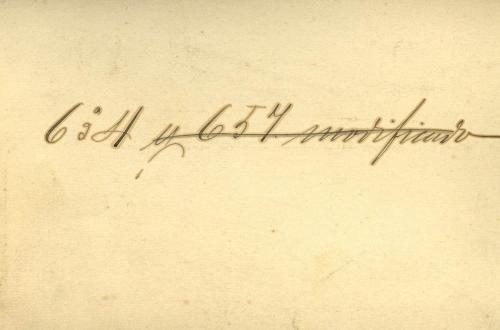 634 y 657 modificado